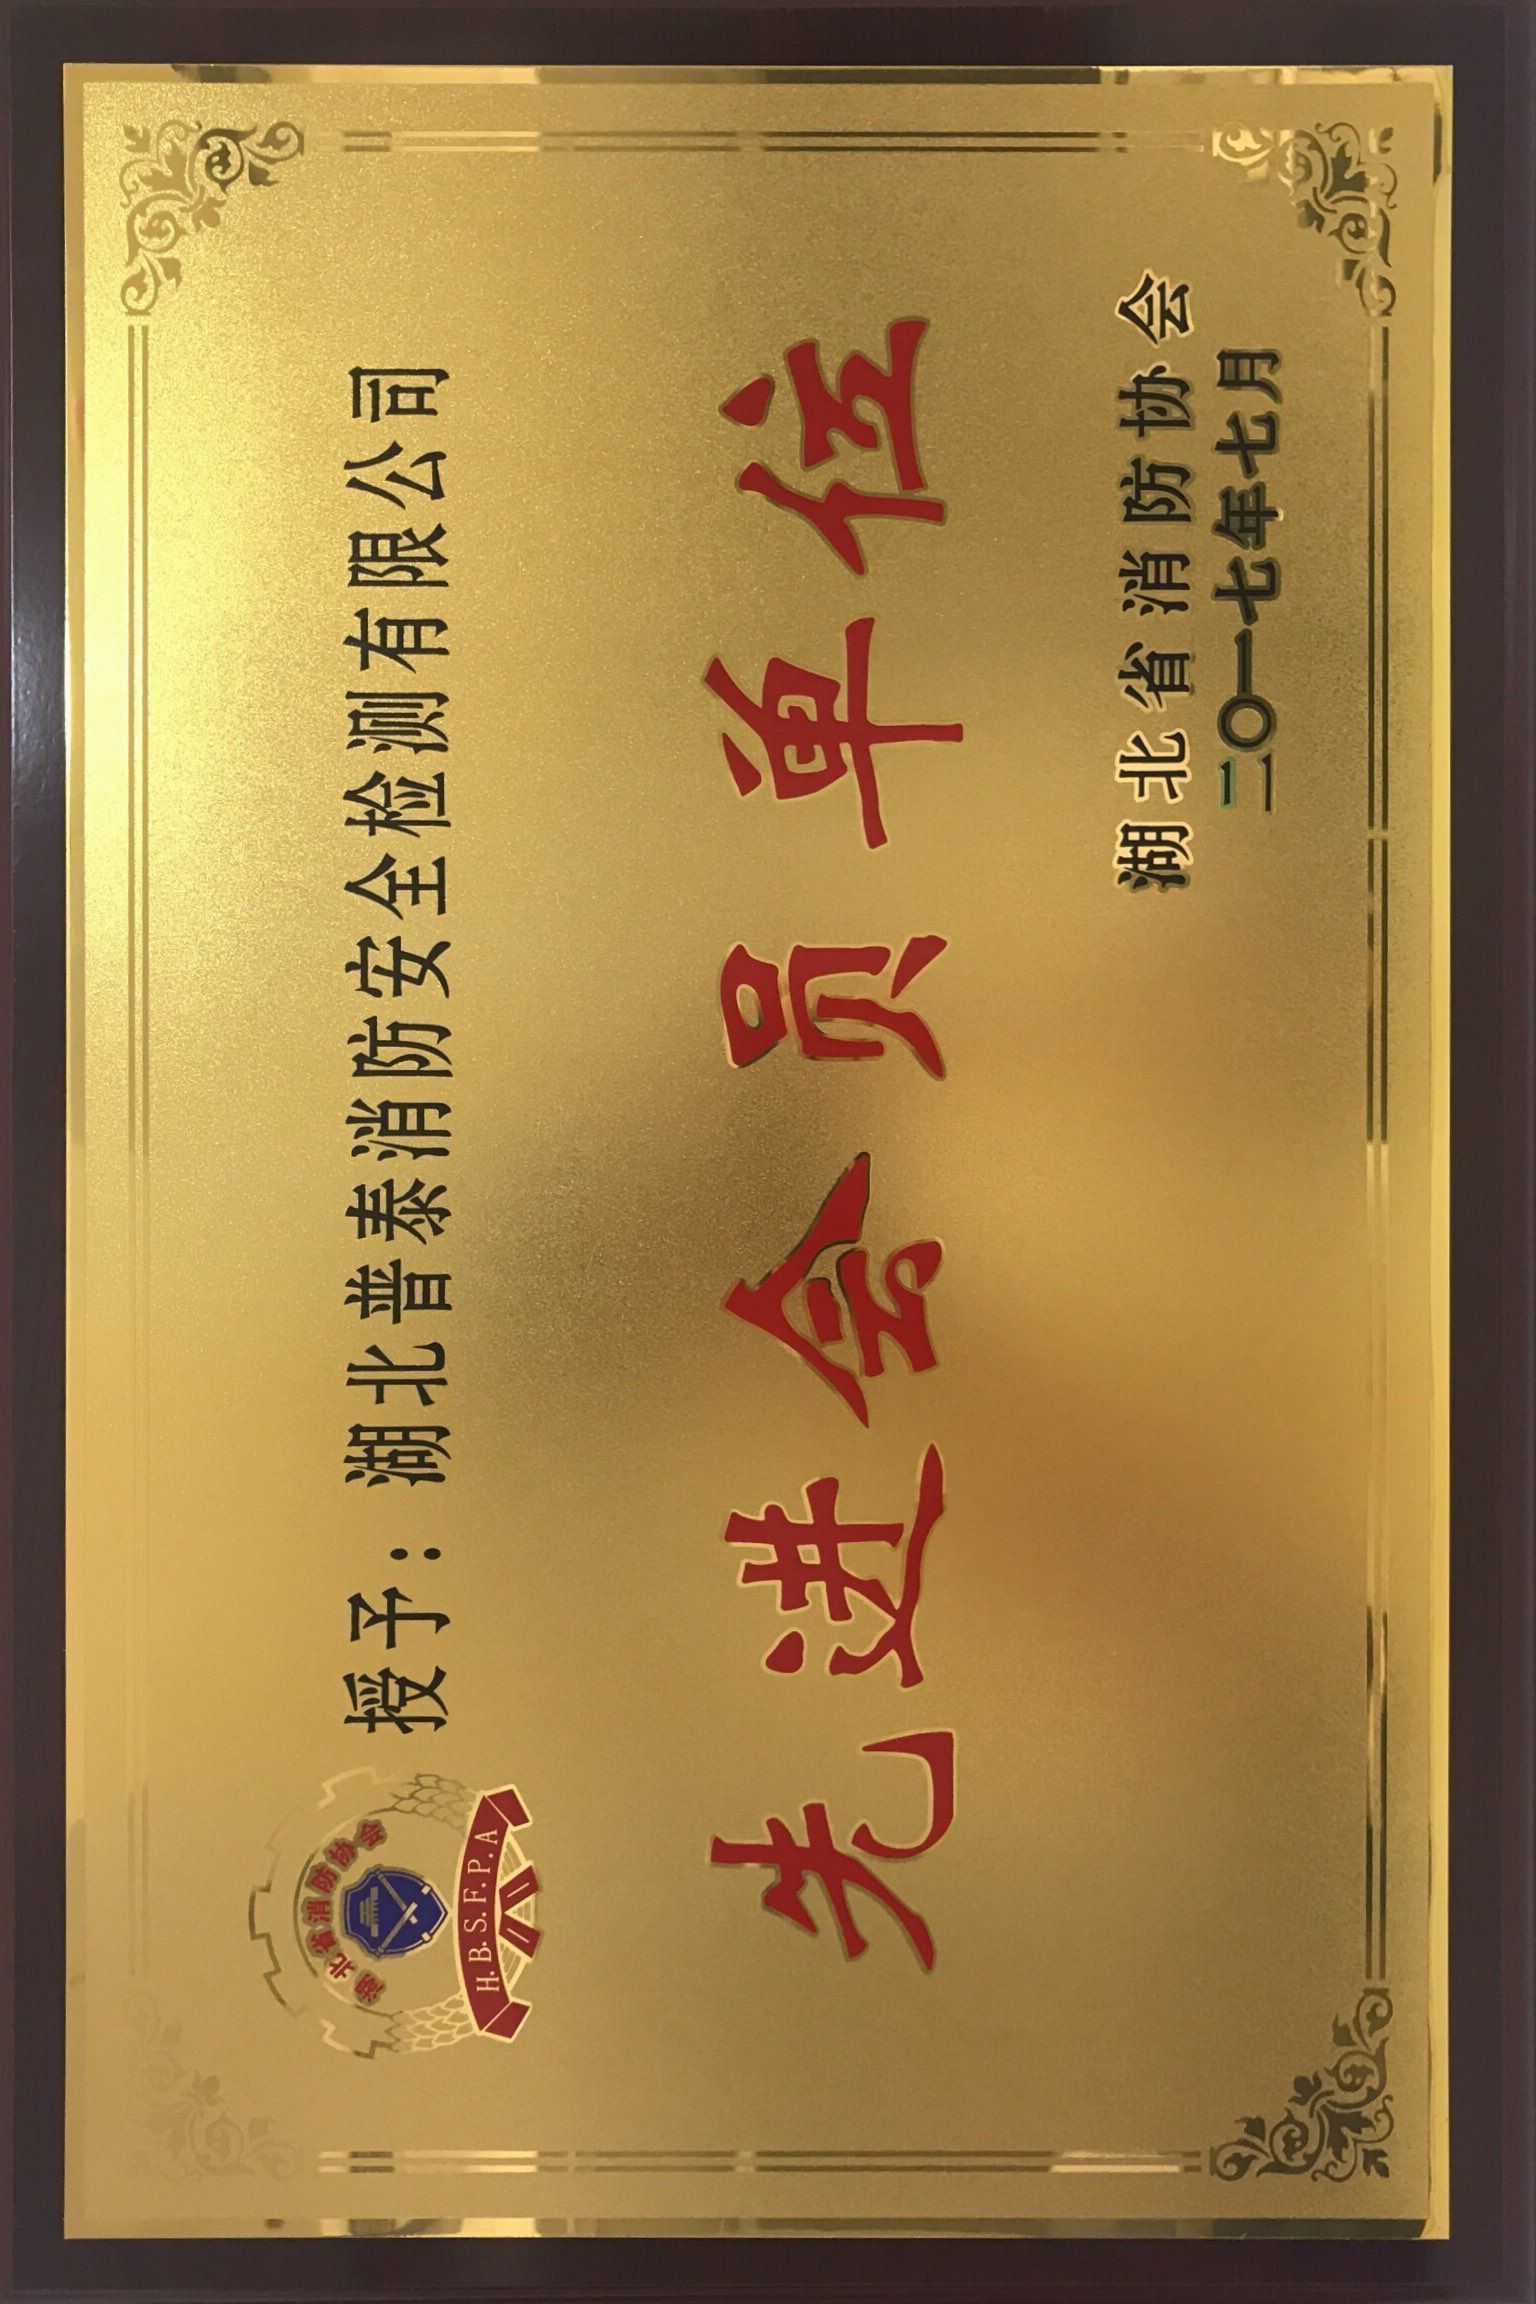 湖北省消防协会
H.B.S.F.P.A
授予：湖北普泰消防安全检测有限公司
先进会员单位
湖北省消防协会
二〇一七年七月